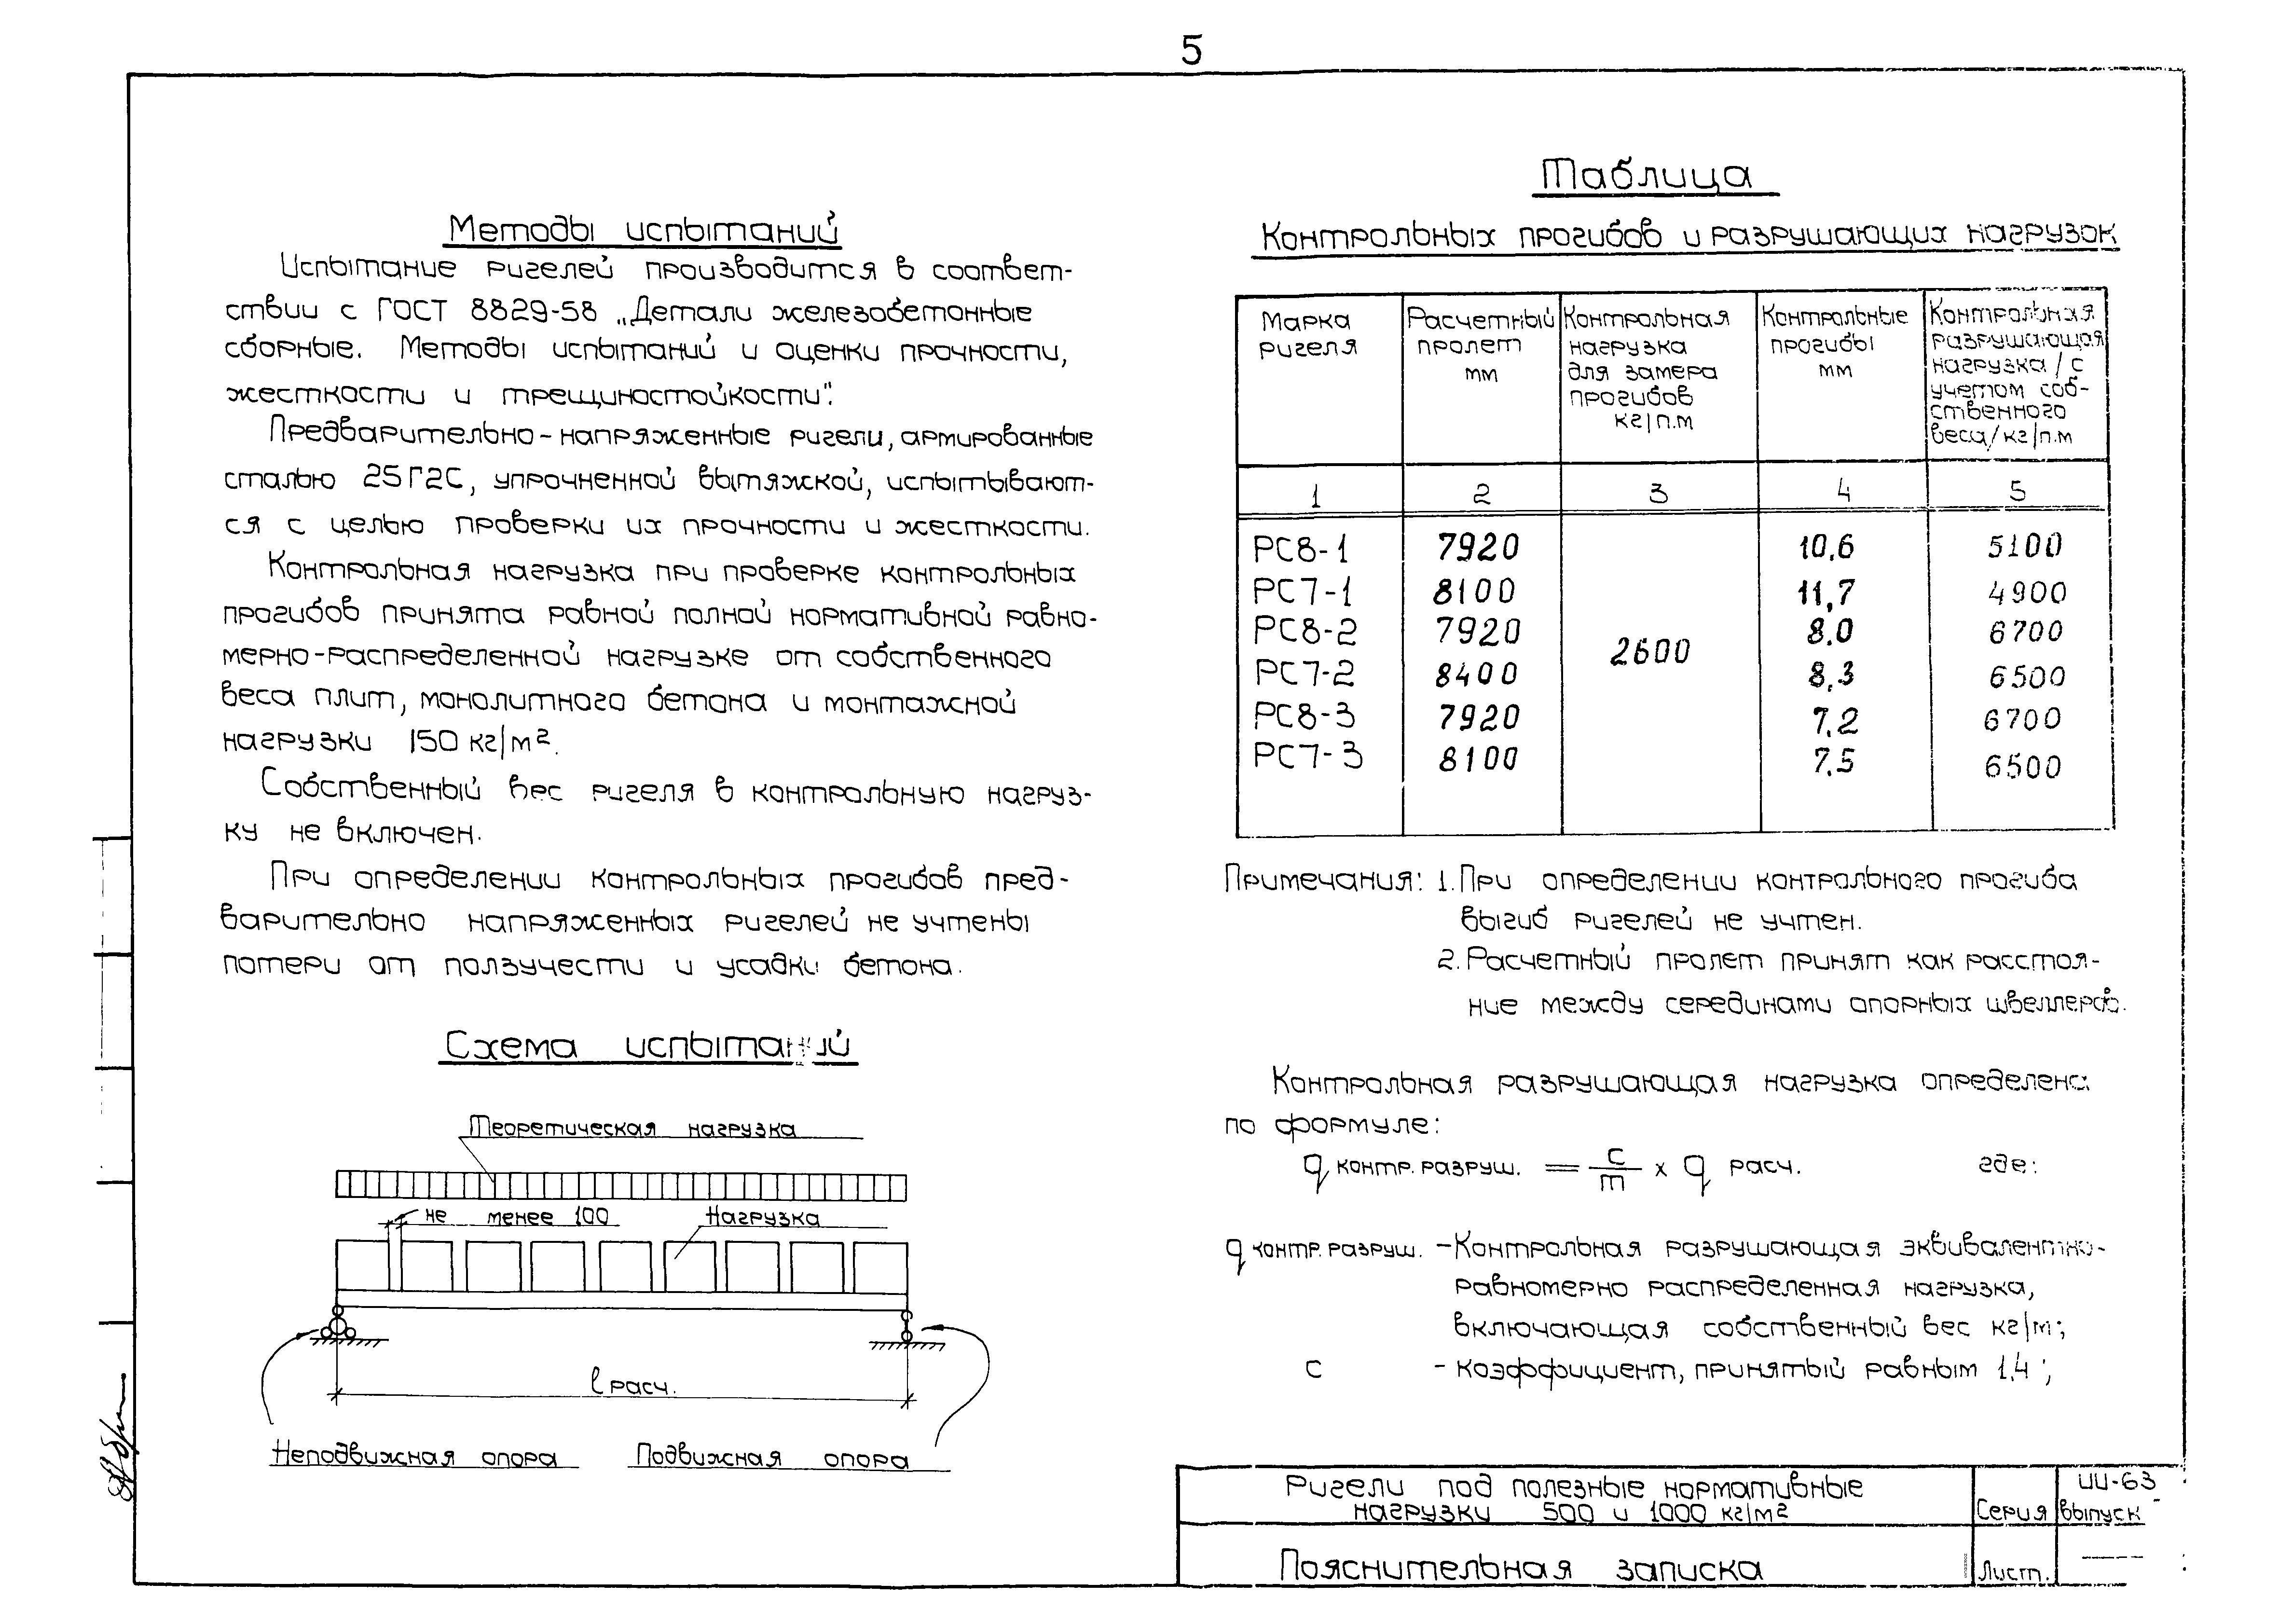 5
Методы испытаний
Испытание ригелей производится в соответ-
ствии с ГОСТ 8829-58 „Детали железобетонные
сборные. Методы испытаний и оценки прочности,
жесткости и трещиностойкости".
Предварительно-напряженные ригели, армированные
сталью 25Г2С, упрочненной вытяжкой, испытывают-
ся с целью проверки их прочности и жесткости.
Контрольная нагрузка при проверке контрольных
прогибов принята равной полной нормативной равно-
мерно-распределенной нагрузке от собственного
веса плит, монолитного бетона и монтажной
нагрузки 150 кг/м².
Собственный вес ригеля в контрольную нагруз-
ку не включен.
При определении контрольных прогибов пред-
варительно напряженных ригелей не учтены
потери от ползучести и усадки бетона.
Схема испытаний
Теоретическая нагрузка
не менее 100 Нагрузка
ℓ расч.
Неподвижная опора Подвижная опора
Таблица
Контрольных прогибов и разрушающих нагрузок
Марка ригеля
Расчетный пролет мм
Контрольная нагрузка для замера прогибов кг/п.м
Контрольные прогибы мм
Контрольная разрушающая нагрузка /с учетом соб-ственного веса/ кг/п.м
1 2 3 4 5
РС8-1 7920 10,6 5100
РС7-1 8100 11,7 4900
РС8-2 7920 8.0 6700
2600
РС7-2 8400 8,3 6500
РС8-3 7920 7,2 6700
РС7-3 8100 7,5 6500
Примечания: 1. При определении контрольного прогиба
выгиб ригелей не учтен.
2. Расчетный пролет принят как расстоя-
ние между серединами опорных швеллеров.
Контрольная разрушающая нагрузка определена
по формуле:
q контр. разруш. = c/m x q расч. где:
q контр. разруш. - Контрольная разрушающая эквивалентно-
равномерно распределенная нагрузка,
включающая собственный вес кг/м;
c - коэффициент, принятый равным 1,4;
Ригели под полезные нормативные
нагрузки 500 и 1000 кг/м²
Серия
ИИ-63
выпуск
Пояснительная записка
Лист.